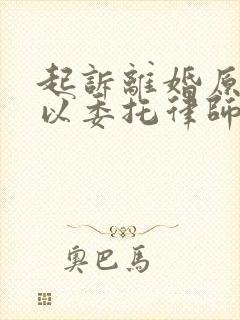 起訴離婚原
以委托律師
奧巴馬